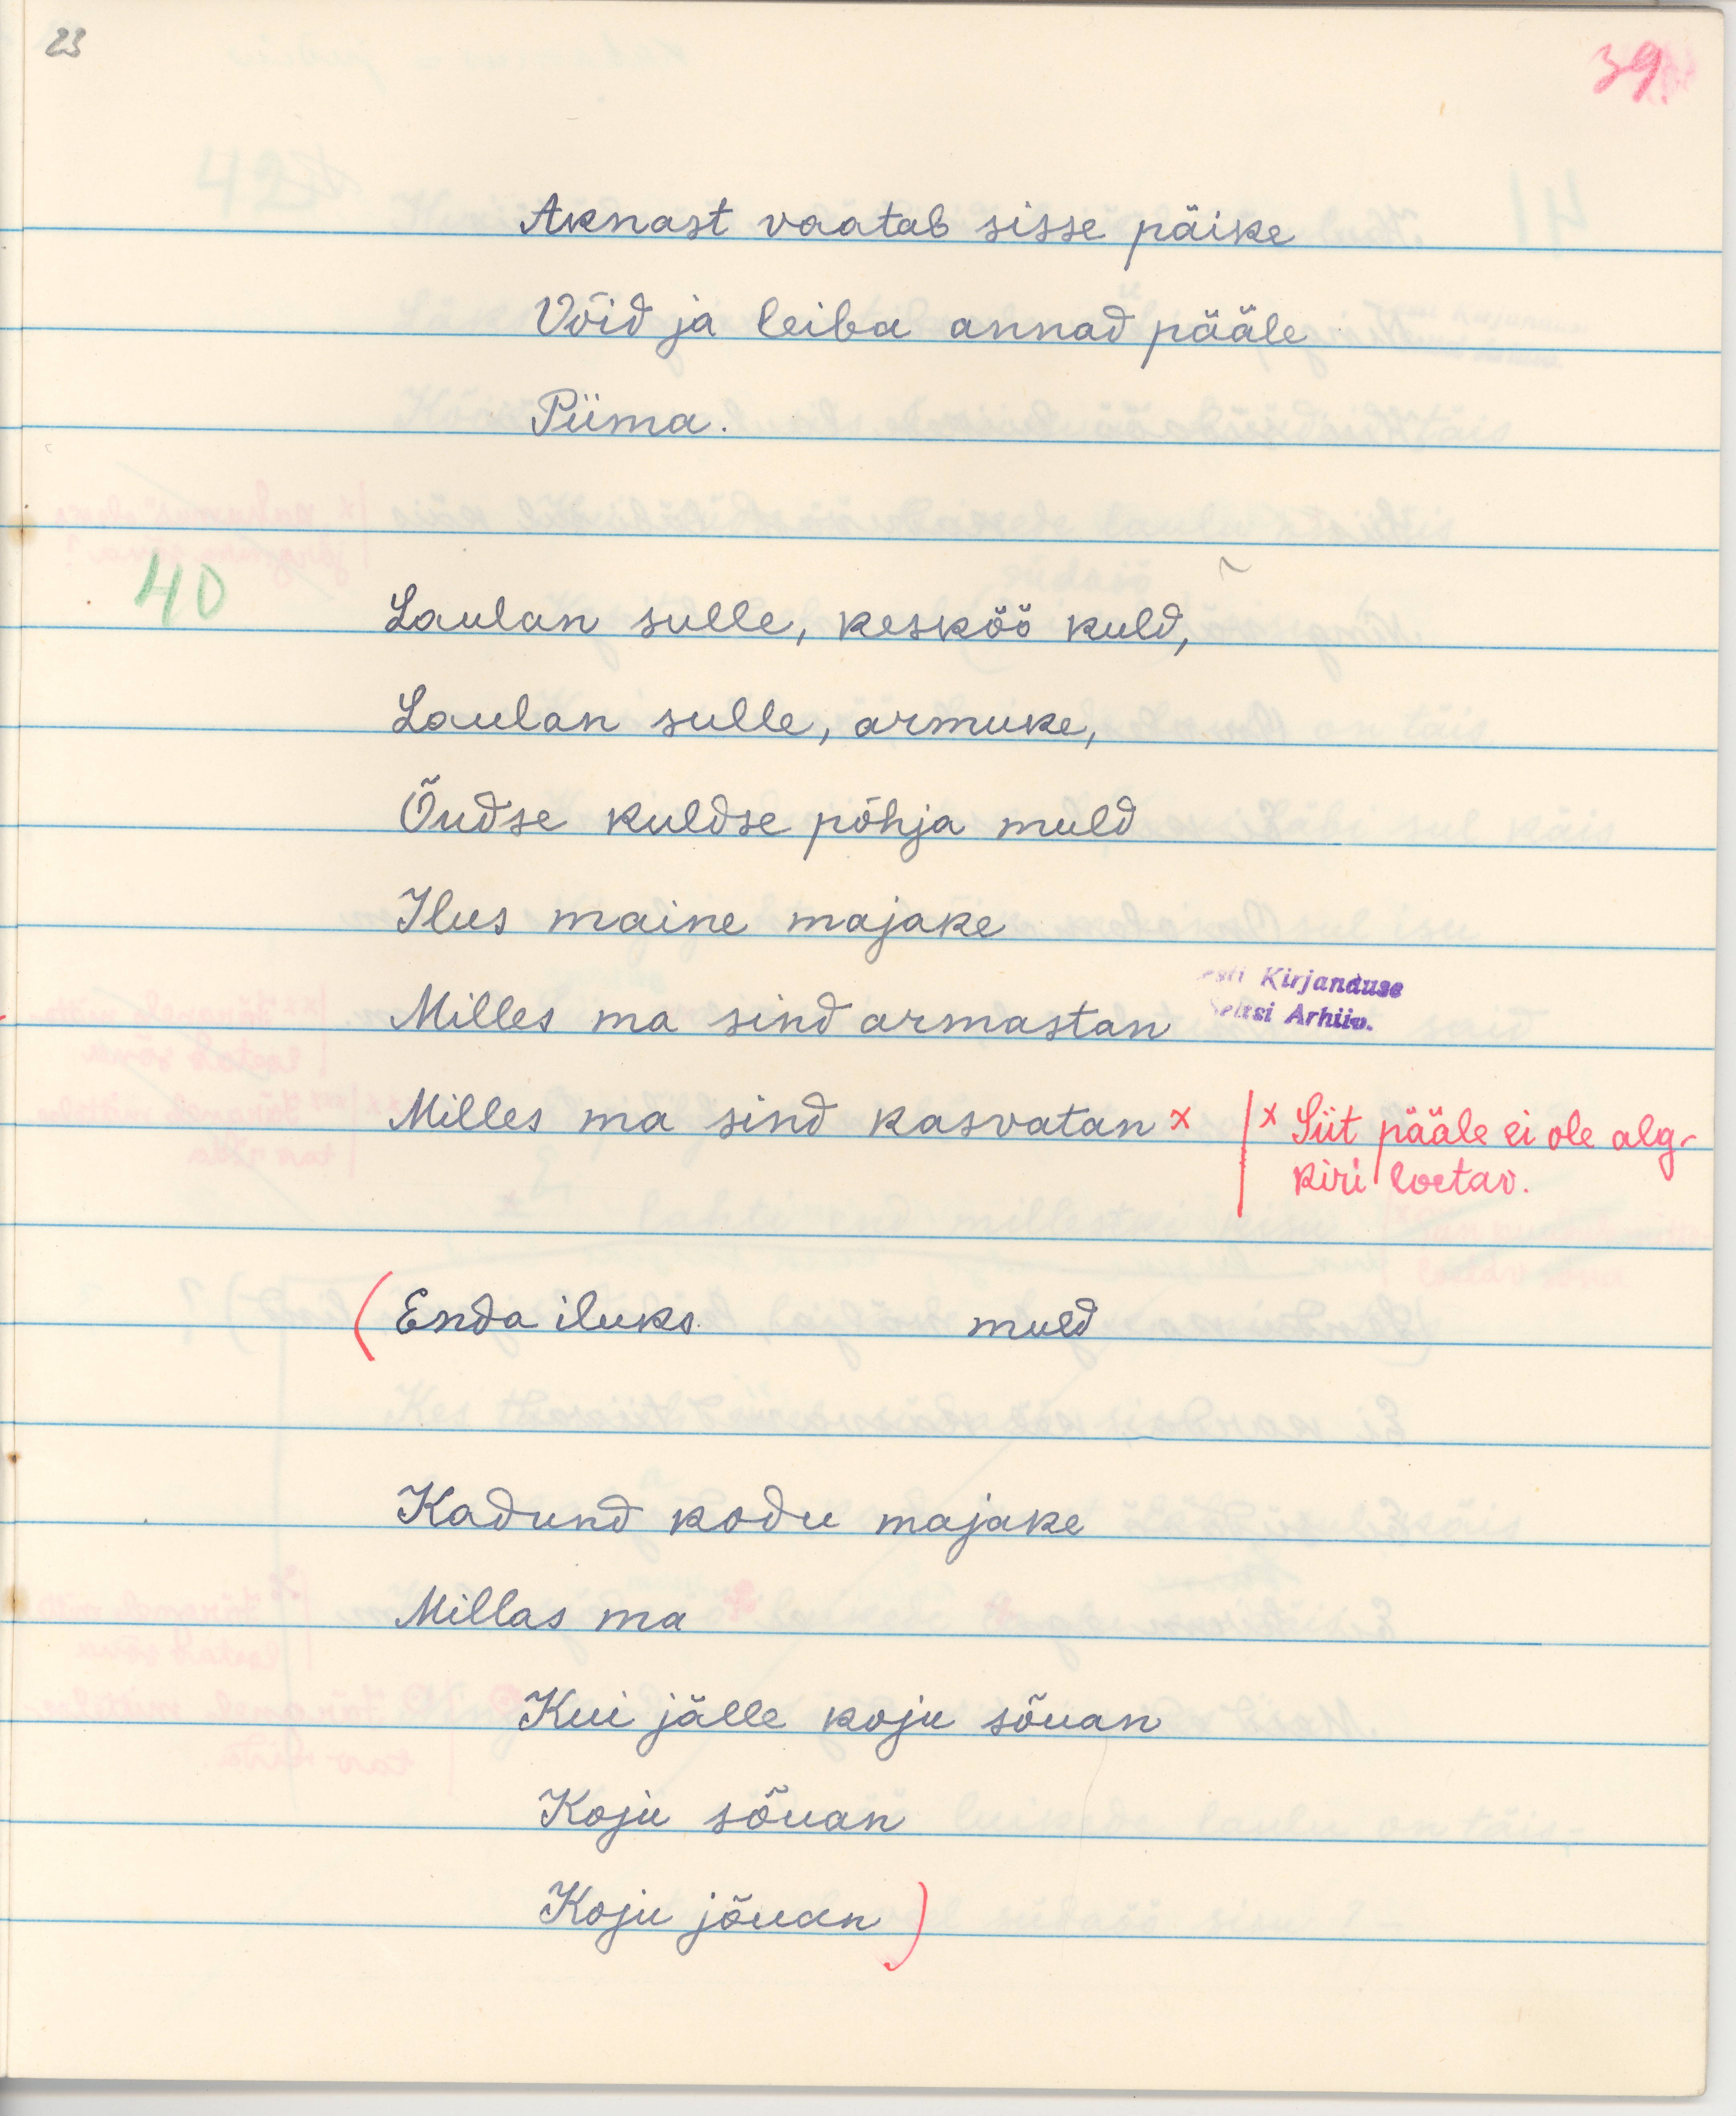 23
39.
Aknast vaatab sisse päike
Võid ja leiba annad pääle
Piima.
40
Laulan sulle, keskôö kuld,
Laulan sulle, armuke,
Õudse kuldse põhja muld
Ilus maine majake
Milles ma sind armastan
Eesti Kirjanduse
Seltsi Arhiiv.
Milles ma sind kasvatan x
x Siit pääle ei ole alg-
kiri loetav.
(Enda iluks muld
Kadund kodu majake
Millas ma
Kui jälle koju sõuan
Koju sõuan
Koju jõuan)